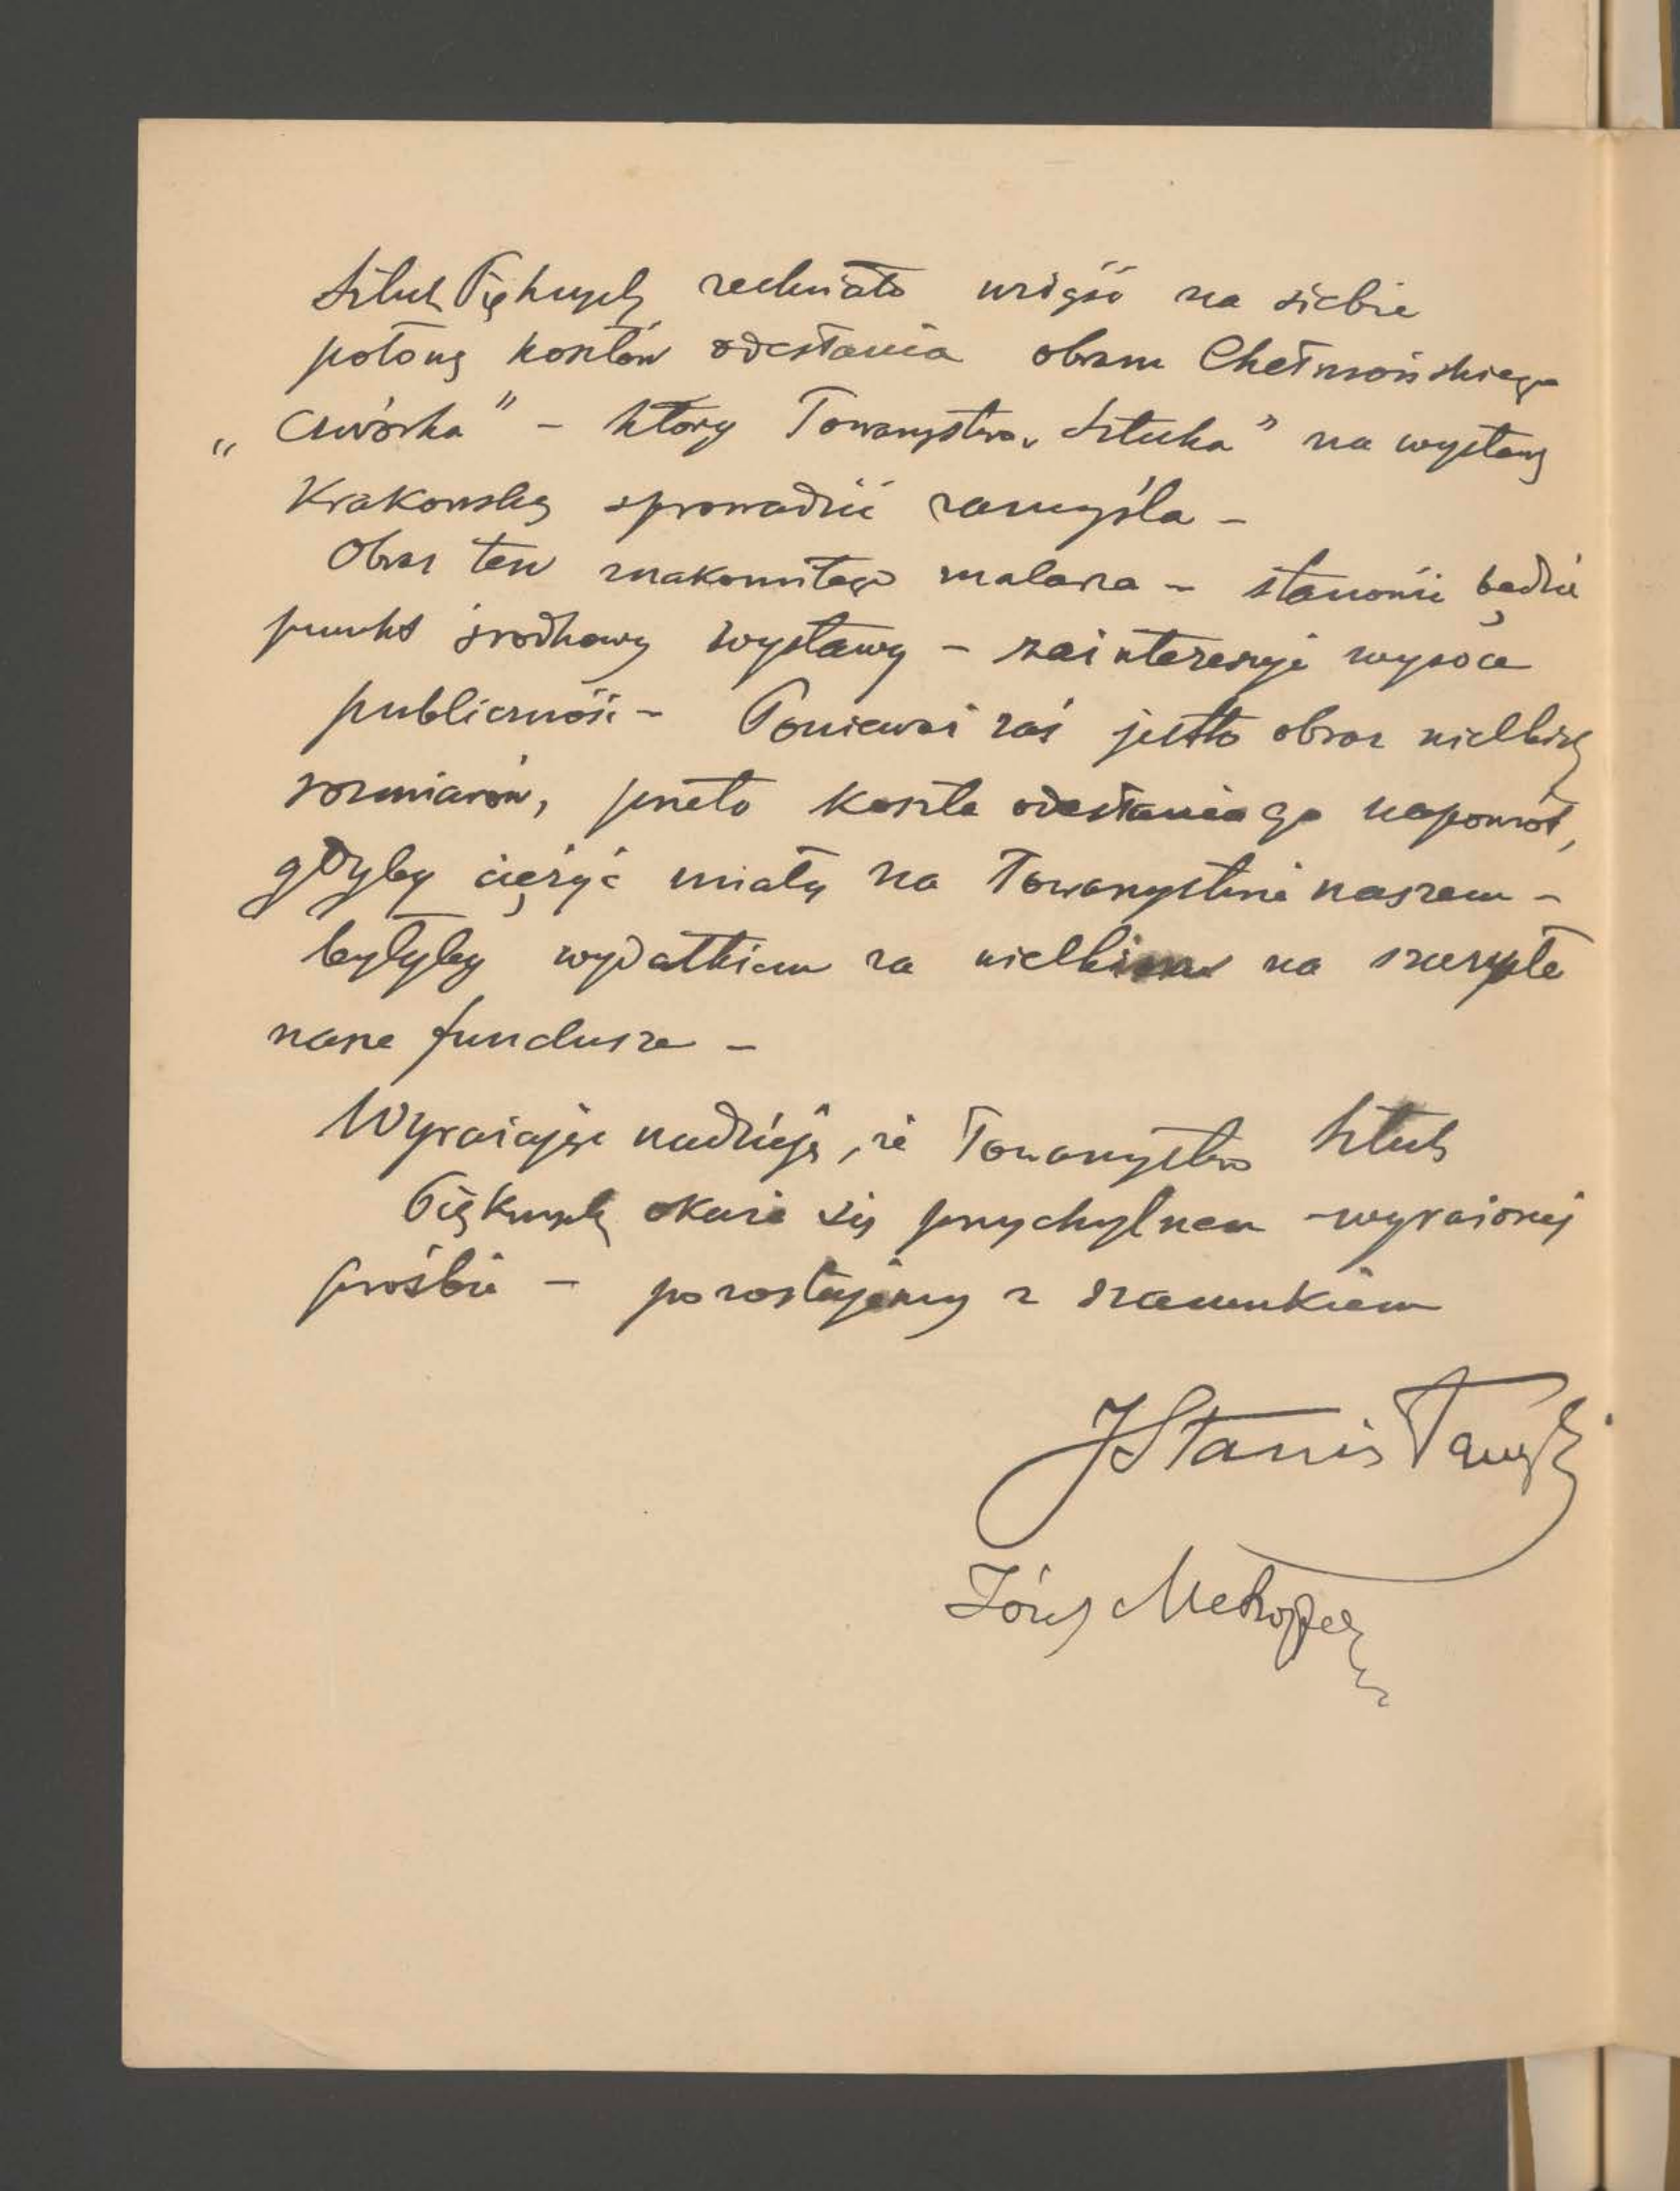 Sztuk Pięknych zechciało wziąść na siebie
połowę kosztów odesłania obrazu Chełmońskiego
„Czwórka" – który Towarzystwo „Sztuka" na wystawę
Krakowską sprowadzić zamyśla –
Obraz ten znakomitego malarza – stanowić będzie
punkt środkowy wystawy – zainteresuje wysoce
publiczność – Ponieważ zaś jestto obraz wielkich
rozmiarów, przeto koszta odesłania go napowrót,
gdyby ciężyć miały na Towarzystwie naszem –
byłyby wydatkiem za wielkim na szczupłe
nasze fundusze –
Wyrażając nadzieję, że Towarzystwo Sztuk
Pięknych okaże się przychylnem wyrażonej
prośbie – pozostajemy z szacunkiem
JStanisławski
Józef Mehoffer